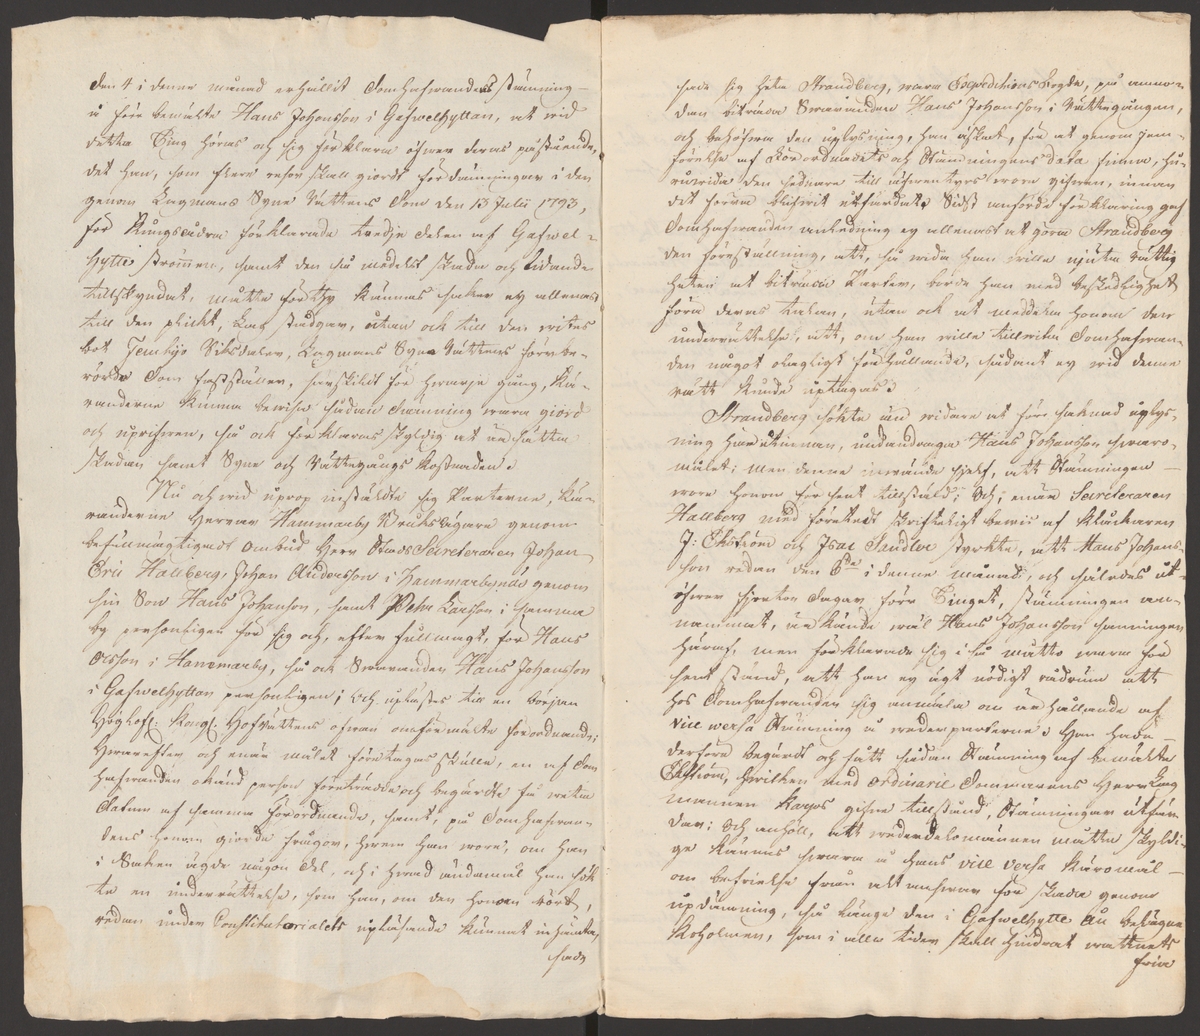 den 4 i denna månad erhållit Domhafvandens stämning
å förr bemälte Hans Johansson i Gafwelhyttan, at wid
detta Ting höras och sig förklara öfwer deras påstående,
det han, som flere resor skall giordt fördämningar i den
genom Lagmans Syne Rättens Dom den 13 Julii 1793,
för Kungsådra förklarade tredje delen af Gafwel-
hytte strömmen, samt den så medelst skada och lidande
tillskyndat, måtte förthy kännas saker ej allenast
till den plicht, Lag stadgar, utan och till den wites
bot Femtijo Riksdaler, Lagmans Syne Rättens förrbe-
rörde Dom fastställer, särskildt för hwarje gång, Kä-
randerne kunna bewisa sådan dämning wara giord
och uprifwen, så och förklaras skyldig at ersätta
skadan samt Syne och Rättegångs kostnaden.
Nu och wid uprop inställde sig Parterne, Kä-
randerne Herrar Hammarby Bruks Ägare genom
befullmägtigadt ombud Herr Stads Secreteraren Johan
Eric Hallberg, Johan Andersson i Hammarby genom
sin Son Hans Johanson, samt Pehr Larsson i samma
by personligen för sig och, efter fullmagt, för Hans
Olsson i Hammarby, så och Swaranden Hans Johansson
i Gafwelhyttan personligen; Och uplästes till en början
Höglofl: Kongl. Hofrättens ofwan omförmälte förordnande;
Hwarefter och enär målet företagas skulle, en af Dom
hafwanden okänd person framträdde och begärdte få weta
datum af samma Förordnande, samt, på Domhafwan-
dens honom giorde frågor, hwem han wore, om han
i Saken ägde någon del, och i hwad ändamål han sök
te en underrättelse, som han, om den honom rört,
redan under Constitutorialets uplässande kunnat inhämta,
sade
sade sig heta Strandberg, wara Expeditions Fogde, på anmo-
dan biträda Swaranden Hans Johansson i Rättegången,
och behöfwa den uplysning, han äskat, för at genom jem-
förelse af Förordnandets och Stämningens data finna, hu-
ruwida den sednare till äfwentyrs wore gifwen, innan
det förra blifwit utfärdat. Sidst anförde förklaring gaf
Domhafwanden anledning ej allenast at göra Strandberg
den föreställning, att, så wida han wille njuta rättig
heten at biträda Parter, borde han med beskedlighet
föra deras talan, utan ock at meddela honom den
underrättelse, att, om han wille tillwita Domhafwan-
den något olagligt förhållande, sådant ej wid denna
rätt kunde uptagas.
Strandberg sökte än widare at före saknad uplys-
ning härutinnan, undandraga Hans Johansson swaro-
målet; men denne inwände sjelf, att Stämningen
wore honom för sent tillställd; Och, enär Secreteraren
Hallberg med företedt skrifteligt bewis af Klockaren
J: Ekström och Isac Sandler styrkte, att Hans Johans-
son redan den 6te i denna månad, och således ut-
öfwer fjorton dagar före Tinget, stämningen an-
nammat, erkände wäl Hans Johansson sanningen
häraf, men förklarade sig i så måtto wara för
sent stämd, att han ej ägt nödigt rådrum att
hos Domhafwanden sig anmäla om erhållande af
vice versa Stämning å wederparterne. Han hade
derföre begärdt och fått sådan Stämning af bemälte
Ekström, hwilken med ordinarie Domarens Herr Lag
mannen Karps gifne tillstånd, Stämningar utfär-
dar; Och anhöll, att wederdelomännen måtte skyldi-
ge kännas swara å hans vice versa Käromål
om befrielse från allt answar för skada genom
updämning, så länge den i Gafwelhytte Ån belägne
Koholmen, som i alla tider skall hindrat wattnets
fria